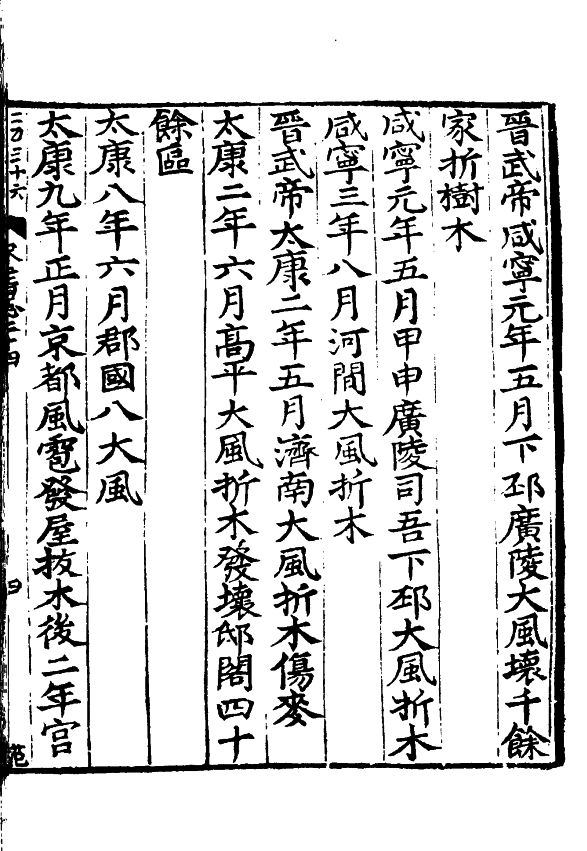 晉武帝咸寧元年五月下邳廣陵大風壞千餘
家折樹木
咸寧元年五月甲申廣陵司吾下邳大風折木
咸寧三年八月河間大風折木
晉武帝太康二年五月濟南大風折木傷麥
太康二年六月高平大風折木發壞邸閣四十
餘區
太康八年六月郡國八大風
太康九年正月京都風雹發屋拔木後二年宮